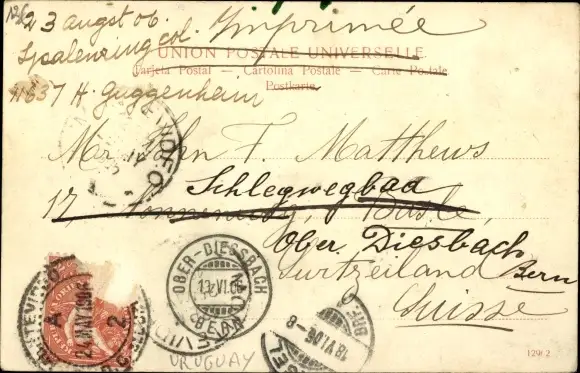 23 augst 06. Imprimée
Spalenring col.
UNION POSTALE UNIVERSELLE
Tarjeta Postal — Cartolina Postale — Carte Postale
Postkarte
11637 H. Guggenheim
Mr. John F. Matthews
Schlegwegbad
17, Basle,
Ober Diesbach
Switzerland Bern
Suisse
OBER-DIESSBACH
19.VI.06
18.VI.06-8
BRF.
BASEL
MONTEVIDEO
A 2
24 MAY 1906
URUGUAY